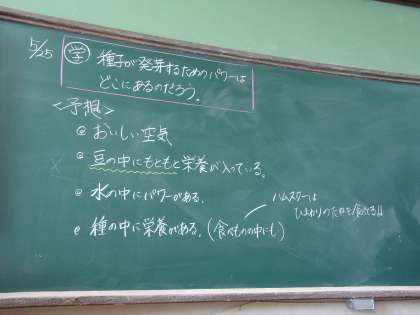 5/25 学 種子が発芽するためのパワーは
どこにあるのだろう。
<予想>
@ おいしい空気
@ 豆の中にもともと栄養が入っている。
@ 水の中にパワーがある。
@ 種の中に栄養がある。(食べものの中にも)
ハムスターは
ひまわりのたねを食べてる!!